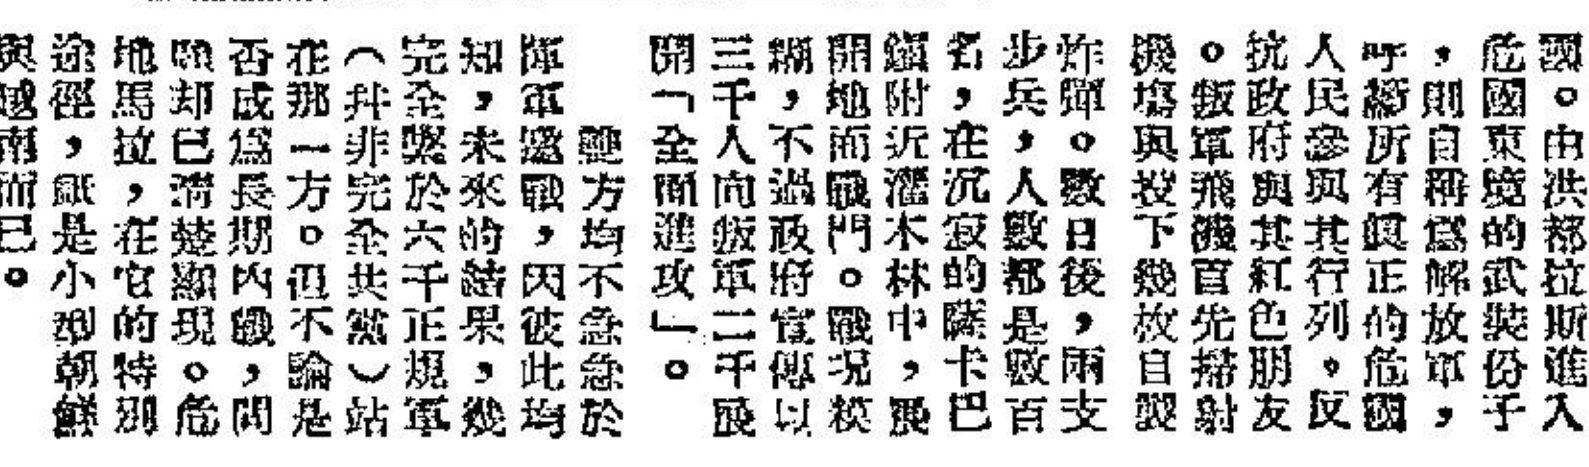 國。由洪都拉斯進入
危國東境的武裝份子
，則自稱爲解放軍，
呼籲所有眞正的危國
人民參與其行列。反
抗政府與其紅色朋友
。叛軍飛機首先掃射
機塲與投下幾枚自製
炸彈。數日後，兩支
步兵，人數都是數百
名，在沉寂的薩卡巴
鎮附近灌木林中，展
開地面戰鬥。戰况模
糊，不過政府宣傳以
三千人向叛軍二千展
開「全面進攻」。
雙方均不急急於
揮軍邀戰，因彼此均
知，未來的結果，幾
完全繫於六千正規軍
（幷非完全共黨）站
在那一方。但不論是
否成爲長期內戰，問
題却已清楚顯現。危
地馬拉，在它的特別
途徑，祇是小型朝鮮
與越南而已。